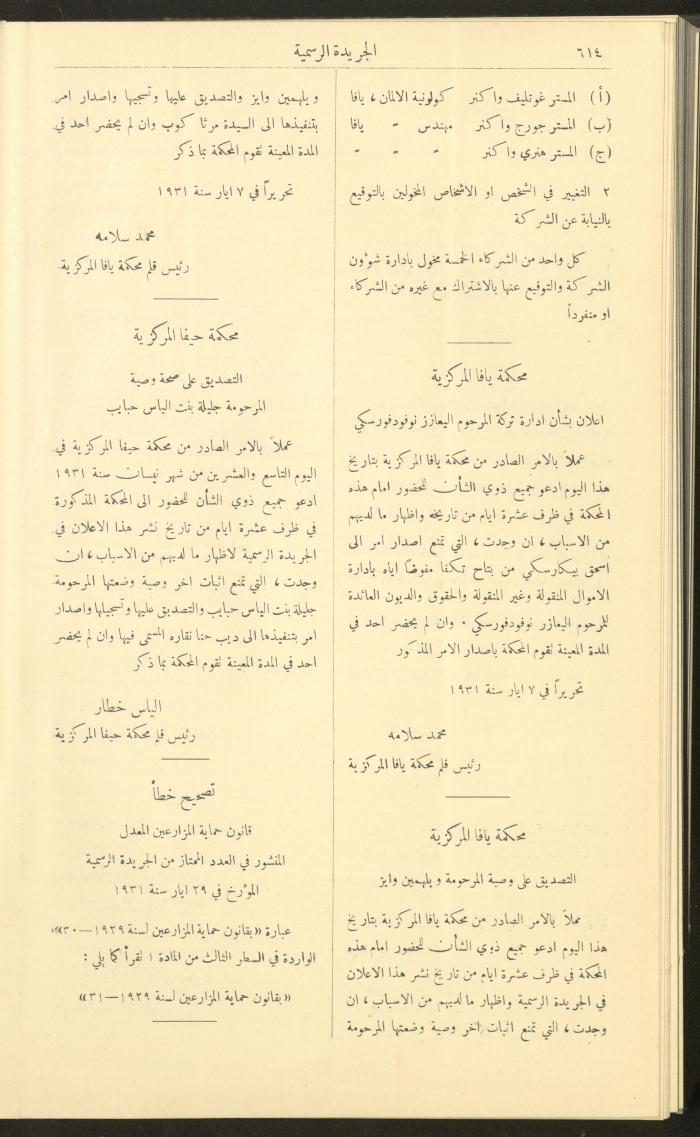 ٦١٤
الجريدة الرسمية
(أ) المستر غوتليف واكنر كولونية الالمان ، يافا
(ب) المستر جورج واكنر مهندس " يافا
(ج) المستر هنري واكنر " " "
٢ التغيير في الشخص او الاشخاص المخولين بالتوقيع
بالنيابة عن الشركة
كل واحد من الشركاء الخمسة مخول بادارة شؤون
الشركة والتوقيع عنها بالاشتراك مع غيره من الشركاء
او منفرداً
محكمة يافا المركزية
اعلان بشأن ادارة تركة المرحوم اليعازز نوفودفورسكي
عملاً بالامر الصادر من محكمة يافا المركزية بتاريخ
هذا اليوم ادعو جميع ذوي الشأن للحضور امام هذه
المحكمة في ظرف عشرة ايام من تاريخه واظهار ما لديهم
من الاسباب ، ان وجدت ، التي تمنع اصدار امر الى
اسحق بيكارسكي من بتاح تكفا مفوضاً اياه بادارة
الاموال المنقولة وغير المنقولة والحقوق والديون العائدة
للمرحوم اليعازر نوفودفورسكي . وان لم يحضر احد في
المدة المعينة نقوم المحكمة باصدار الامر المذكور
تحريراً في ٧ ايار سنة ١٩٣١
محمد سلامه
رئيس قلم محكمة يافا المركزية
محكمة يافا المركزية
التصديق على وصية المرحومة ويلهمين وايز
عملاً بالامر الصادر من محكمة يافا المركزية بتاريخ
هذا اليوم ادعو جميع ذوي الشأن للحضور امام هذه
المحكمة في ظرف عشرة ايام من تاريخ نشر هذا الاعلان
في الجريدة الرسمية واظهار ما لديهم من الاسباب ، ان
وجدت ، التي تمنع اثبات اخر وصية وضعتها المرحومة
ويلهمين وايز والتصديق عليها وتسجيها واصدار امر
بتنفيذها الى السيدة مرثا كوب وان لم يحضر احد في
المدة المعينة نقوم المحكمة بما ذكر
تحريراً في ٧ ايار سنة ١٩٣١
محمد سلامه
رئيس قلم محكمة يافا المركزية
محكمة حيفا المركزية
التصديق على صحة وصية
المرحومة جليلة بنت الياس حبايب
عملاً بالامر الصادر من محكمة حيفا المركزية في
اليوم التاسع والعشرين من شهر نيسان سنة ١٩٣١
ادعو جميع ذوي الشأن للحضور الى المحكمة المذكورة
في ظرف عشرة ايام من تاريخ نشر هذا الاعلان في
الجريدة الرسمية لاظهار ما لديهم من الاسباب ، ان
وجدت ، التي تمنع اثبات اخر وصية وضعتها المرحومة
جليلة بنت الياس حبايب والتصديق عليها وتسجيلها واصدار
امر بتنفيذها الى ديب حنا نقاره المسمى فيها وان لم يحضر
احد في المدة المعينة نقوم المحكمة بما ذكر
الياس خطار
رئيس قلم محكمة حيفا المركزية
تصحيح خطأ
قانون حماية المزارعين المعدل
المنشور في العدد الممتاز من الجريدة الرسمية
المؤرخ في ٢٩ ايار سنة ١٩٣١
عبارة «بقانون حماية المزارعين لسنة ١٩٢٩—٣٠»
الواردة في السطر الثالث من المادة ١ نقرأ كما يلي :
«بقانون حماية المزارعين لسنة ١٩٢٩—٣١»